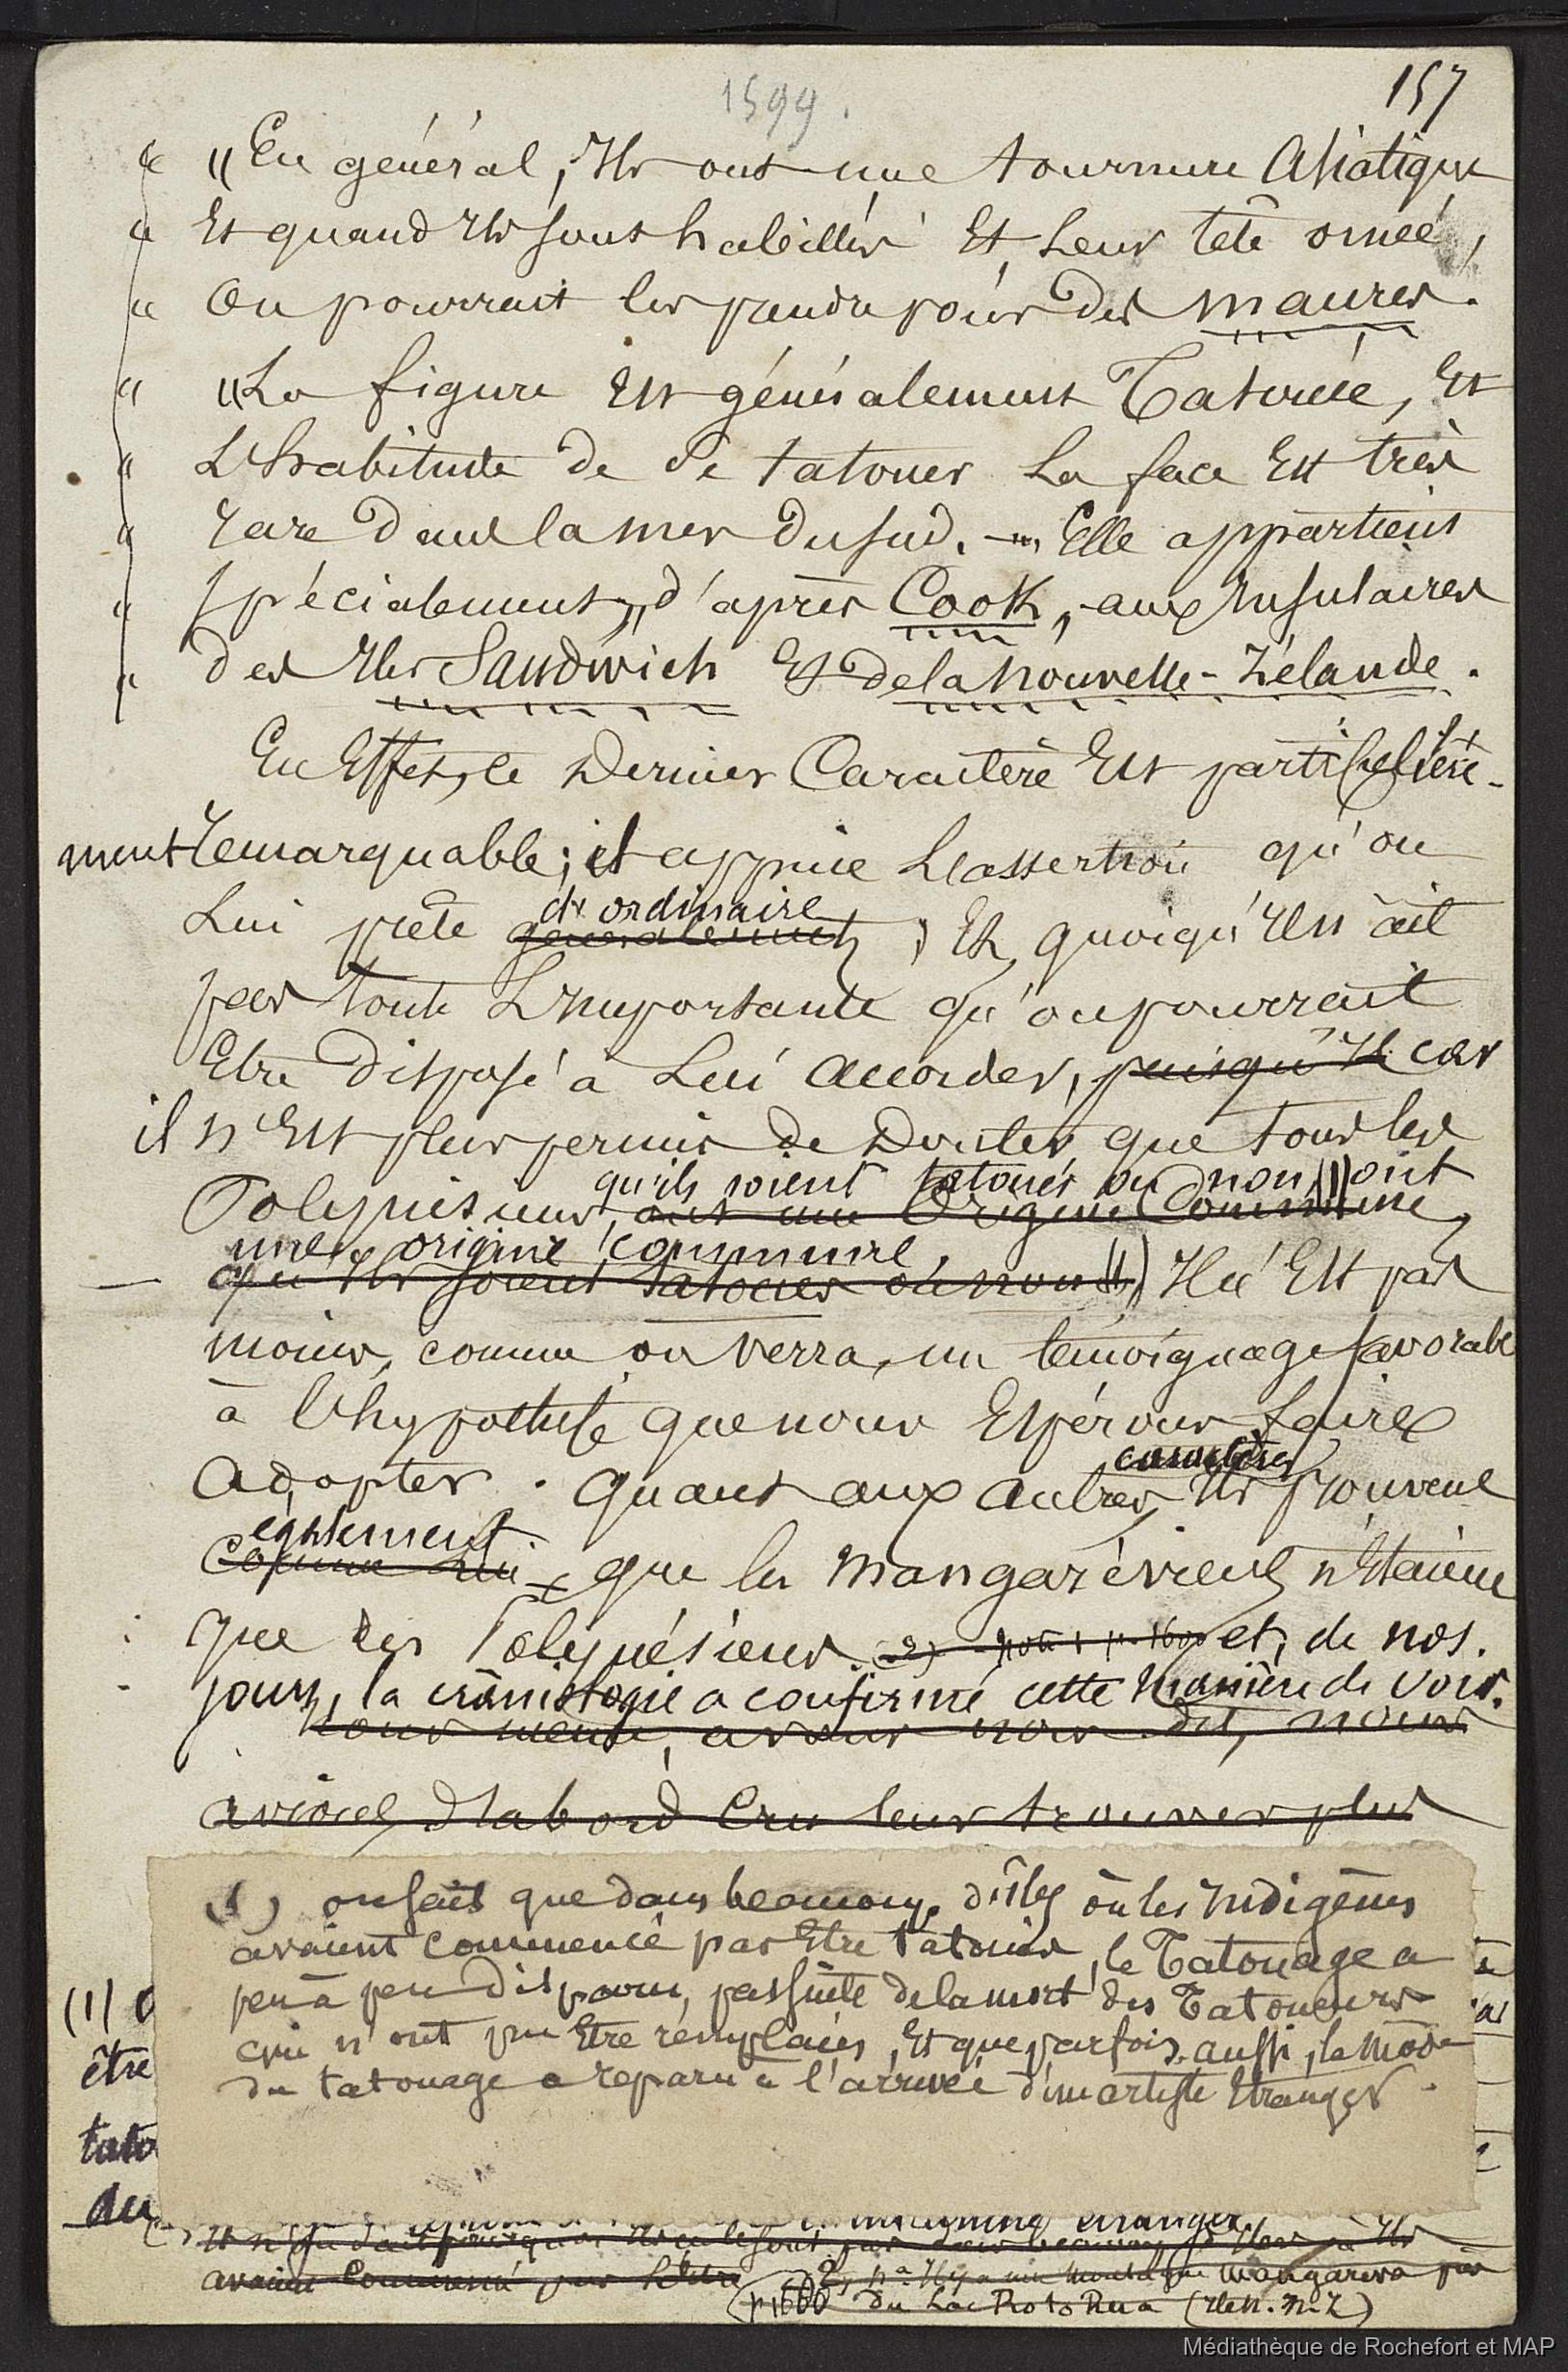 1599.
157
« "En général, Ils ont une tournure Asiatique
« Et quand Ils sont habillés Et leur tête ornée,
« On pourrait les prendre pour des maures.
« "La figure Est généralement Tatouée, Et
« L'habitude de se tatouer La face Est très
« rare dans la mer du sud. — Elle appartient
« spécialement, d'après Cook, aux Insulaires
« des Iles Sandwich Et de la nouvelle-Zélande.
En Effet, le Dernier Caractère Est particulière-
ment remarquable; il appuie L'assertion qu'on
d'ordinaire
Lui prête généralement, Et, quoiqu'Il n'ait
pas toute L'Importance qu'on pourrait
Etre disposé à Lui accorder, puisqu'Il car
il n'Est plus permis de Douter que tous les
qu'ils soient tatoués ou non (1) ont
Polynésiens, ont une Origine Commune,
une origine commune,
qu'Ils soient tatoués ou non (1) Il n'Est pas
moins, comme on verra, un témoignage favorable
à l'hypothèse que nous Espérons faire
adopter. Quant aux autres caractères, Ils prouvent
également
comme lui que les Mangaréviens n'Etaient
que des Polynésiens. (2) note 1 p. 1600 et, de nos
jours, la crâniologie a confirmé cette manière de voir.
avoir dit, nous
avions d'abord Cru leur trouver plus
(1) on sait que dans beaucoup d'îles où les Indigènes
avaient commencé par Etre tatoués, le Tatouage a
peu à peu disparu, par suite de la mort des Tatoueurs
qui n'ont pu Etre remplacés, Et que parfois aussi, la mode
du tatouage a reparu à l'arrivée d'un artiste Etranger.
(1) O
être
tato
du
étranger
avaient Commencé par L'Etre 2, Il y a une Mangareva près
(p 1600 du Lac Roto Rua (Ile N. N-Z)
Médiathèque de Rochefort et MAP